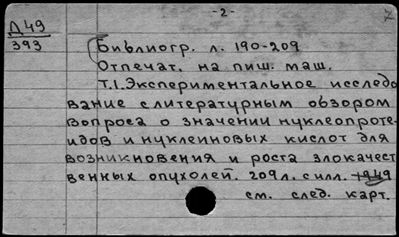 -2-
7
Д 49
393
Библиогр. л. 190-209
Отпечат. на пиш. маш.
Т.1. Экспериментальное исследо
вание с литературным обзором
вопроса о значении нуклеопроте-
идов и нуклеиновых кислот для
возникновения и роста злокачест
венных опухолей. 209 л. с илл. 1949
см. след. карт.